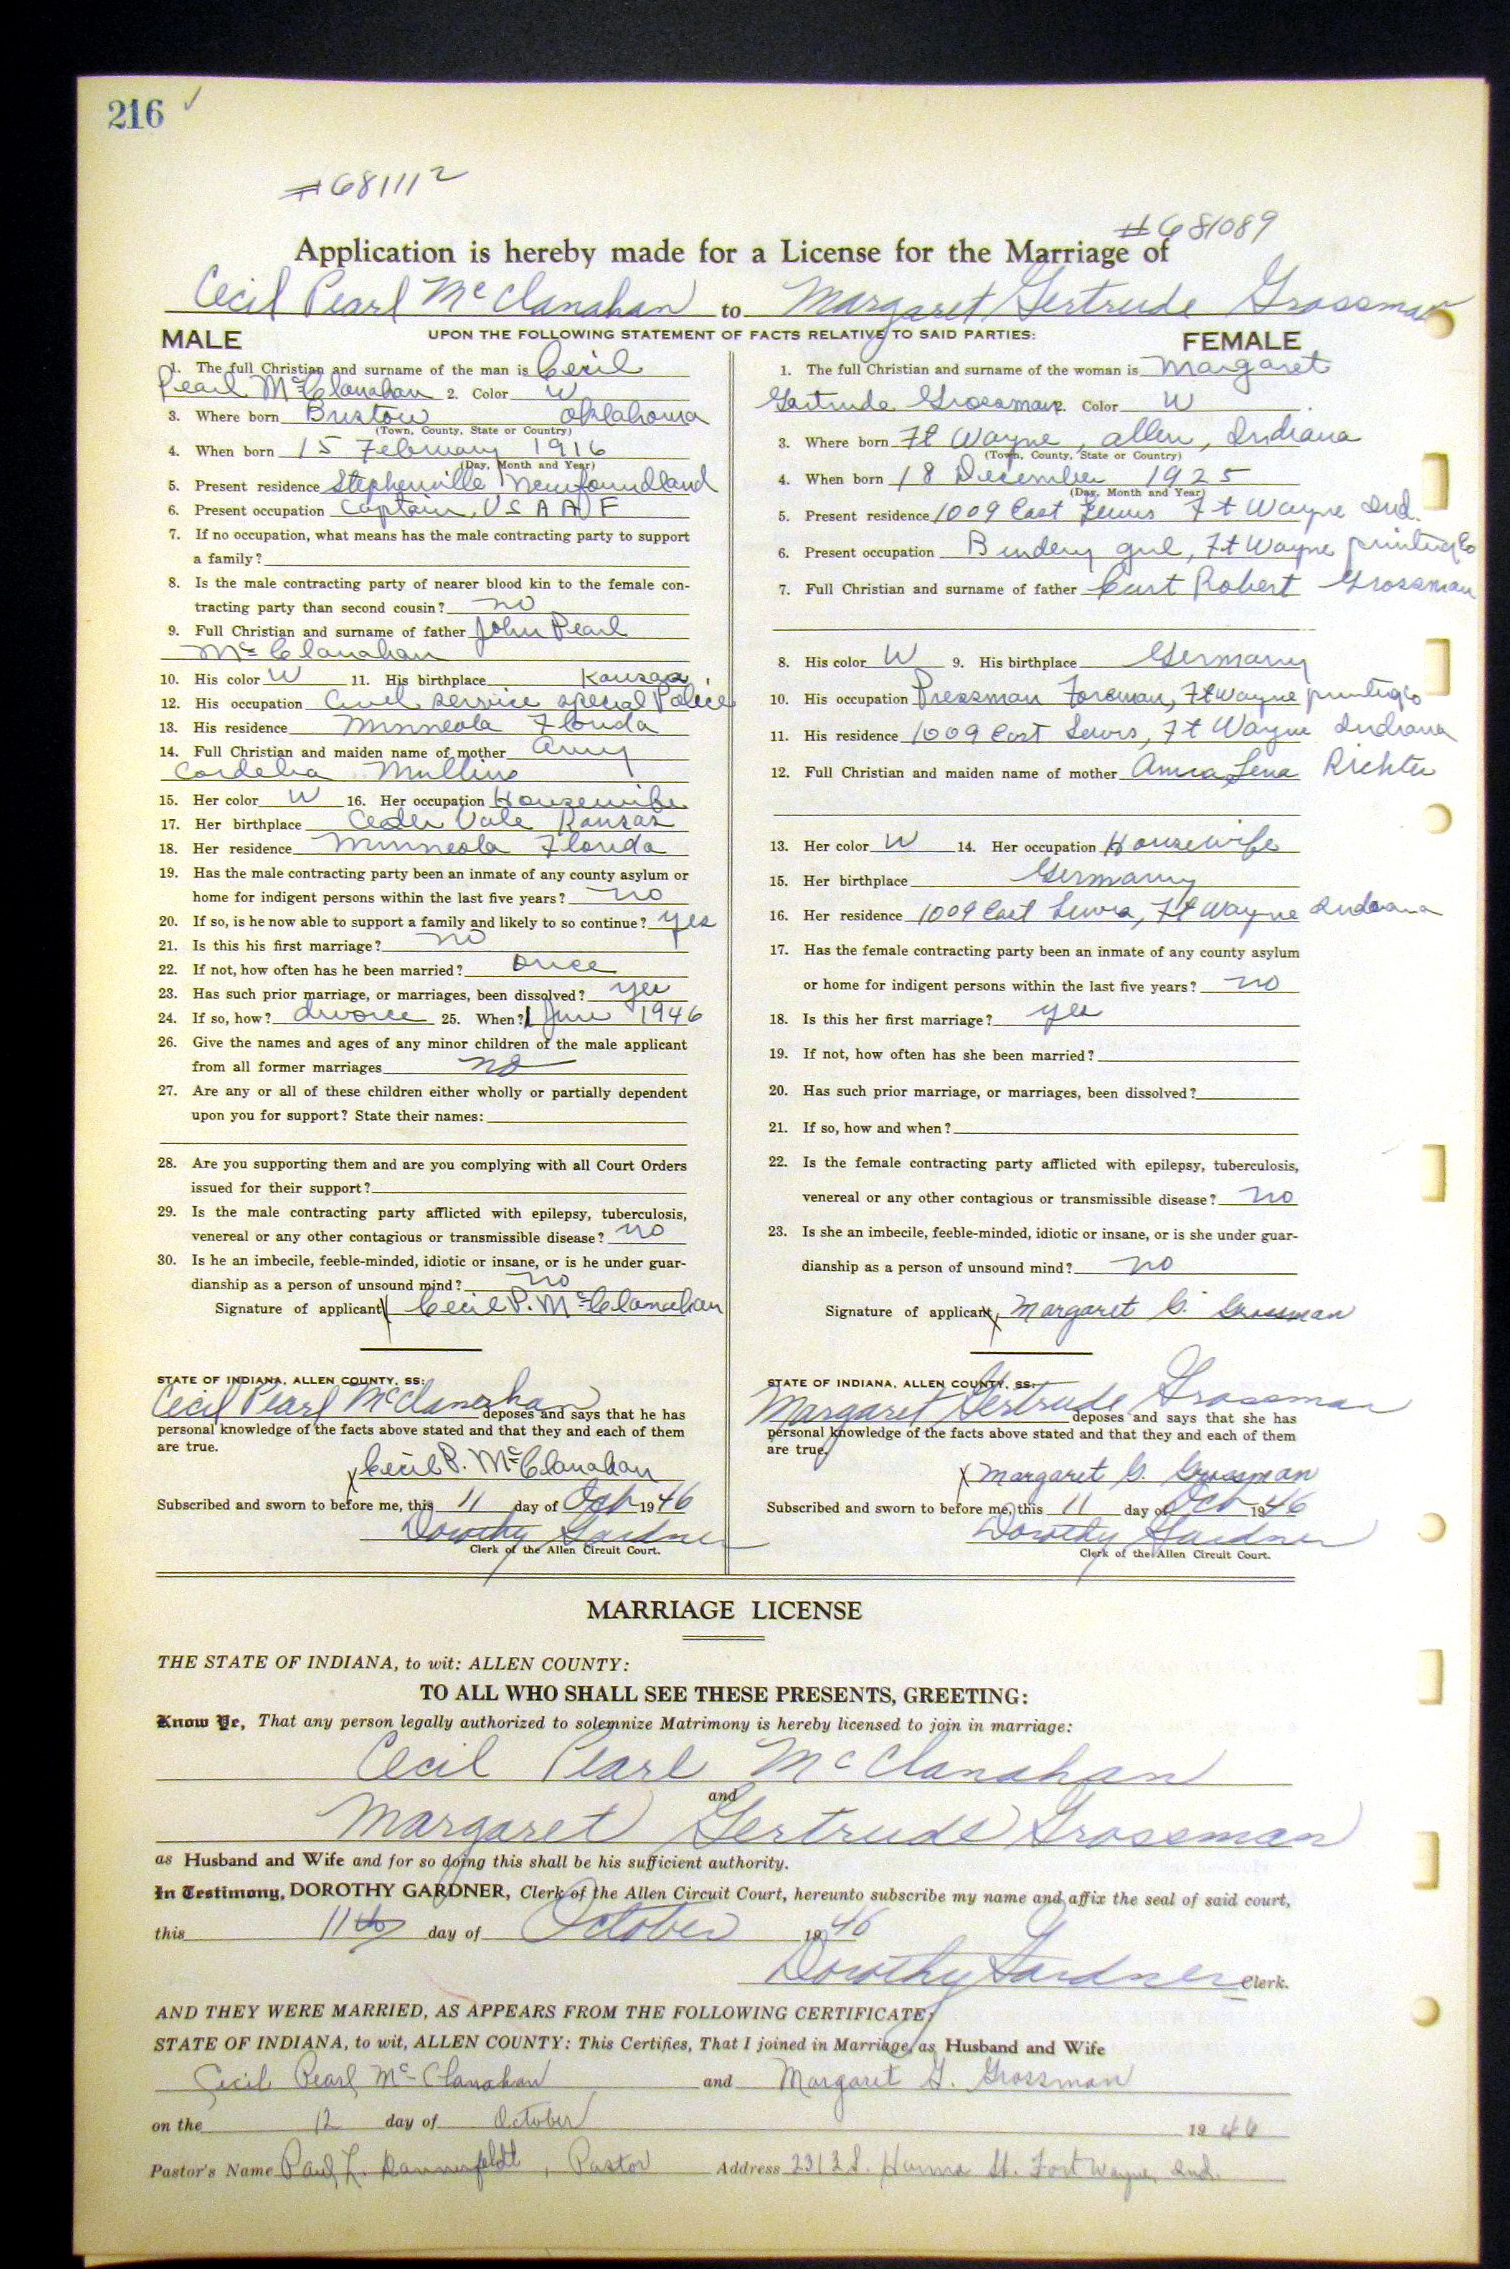 216 ✓
#681112
#681089
Application is hereby made for a License for the Marriage of
Cecil Pearl McClanahan to Margaret Gertrude Grossman
UPON THE FOLLOWING STATEMENT OF FACTS RELATIVE TO SAID PARTIES:
MALE
1. The full Christian and surname of the man is Cecil
Pearl McClanahan 2. Color W
3. Where born Bristow Oklahoma
(Town, County, State or Country)
4. When born 15 February 1916
(Day, Month and Year)
5. Present residence Stephenville Newfoundland
6. Present occupation Captain, USAAF
7. If no occupation, what means has the male contracting party to support
a family?
8. Is the male contracting party of nearer blood kin to the female con-
tracting party than second cousin? no
9. Full Christian and surname of father John Pearl
McClanahan
10. His color W 11. His birthplace Kansas
12. His occupation Civil service special Police
13. His residence Minneola Florida
14. Full Christian and maiden name of mother Amy
Cordelia Mullins
15. Her color W 16. Her occupation Housewife
17. Her birthplace Ceder Vale Kansas
18. Her residence Minneola Florida
19. Has the male contracting party been an inmate of any county asylum or
home for indigent persons within the last five years? no
20. If so, is he now able to support a family and likely to so continue? yes
21. Is this his first marriage? no
22. If not, how often has he been married? once
23. Has such prior marriage, or marriages, been dissolved? yes
24. If so, how? divorce 25. When? 1 June 1946
26. Give the names and ages of any minor children of the male applicant
from all former marriages no
27. Are any or all of these children either wholly or partially dependent
upon you for support? State their names:
28. Are you supporting them and are you complying with all Court Orders
issued for their support?
29. Is the male contracting party afflicted with epilepsy, tuberculosis,
venereal or any other contagious or transmissible disease? no
30. Is he an imbecile, feeble-minded, idiotic or insane, or is he under guar-
dianship as a person of unsound mind? no
Signature of applicant X Cecil P. McClanahan
STATE OF INDIANA, ALLEN COUNTY, SS:
Cecil Pearl McClanahan deposes and says that he has
personal knowledge of the facts above stated and that they and each of them
are true.
X Cecil P. McClanahan
Subscribed and sworn to before me, this 11 day of Oct 1946
Dorothy Gardner
Clerk of the Allen Circuit Court.
FEMALE
1. The full Christian and surname of the woman is Margaret
Gertrude Grossman 2. Color W
3. Where born Ft Wayne, Allen, Indiana
(Town, County, State or Country)
4. When born 18 December 1925
(Day, Month and Year)
5. Present residence 1009 East Lewis Ft Wayne Ind.
6. Present occupation Bindery girl, Ft Wayne printing Co
7. Full Christian and surname of father Curt Robert Grossman
8. His color W 9. His birthplace Germany
10. His occupation Pressman Foreman, Ft Wayne printing Co
11. His residence 1009 East Lewis, Ft Wayne Indiana
12. Full Christian and maiden name of mother Anna Lena Richter
13. Her color W 14. Her occupation Housewife
15. Her birthplace Germany
16. Her residence 1009 East Lewis, Ft Wayne Indiana
17. Has the female contracting party been an inmate of any county asylum
or home for indigent persons within the last five years? no
18. Is this her first marriage? yes
19. If not, how often has she been married?
20. Has such prior marriage, or marriages, been dissolved?
21. If so, how and when?
22. Is the female contracting party afflicted with epilepsy, tuberculosis,
venereal or any other contagious or transmissible disease? no
23. Is she an imbecile, feeble-minded, idiotic or insane, or is she under guar-
dianship as a person of unsound mind? no
Signature of applicant X Margaret G. Grossman
STATE OF INDIANA, ALLEN COUNTY, SS:
Margaret Gertrude Grossman deposes and says that she has
personal knowledge of the facts above stated and that they and each of them
are true.
X Margaret G. Grossman
Subscribed and sworn to before me, this 11 day of Oct 1946
Dorothy Gardner
Clerk of the Allen Circuit Court.
MARRIAGE LICENSE
THE STATE OF INDIANA, to wit: ALLEN COUNTY:
TO ALL WHO SHALL SEE THESE PRESENTS, GREETING:
Know Ye, That any person legally authorized to solemnize Matrimony is hereby licensed to join in marriage:
Cecil Pearl McClanahan
and
Margaret Gertrude Grossman
as Husband and Wife and for so doing this shall be his sufficient authority.
In Testimony, DOROTHY GARDNER, Clerk of the Allen Circuit Court, hereunto subscribe my name and affix the seal of said court,
this 11th day of October 1946
Dorothy Gardner Clerk.
AND THEY WERE MARRIED, AS APPEARS FROM THE FOLLOWING CERTIFICATE:
STATE OF INDIANA, to wit, ALLEN COUNTY: This Certifies, That I joined in Marriage as Husband and Wife
Cecil Pearl McClanahan and Margaret G. Grossman
on the 12 day of October 1946
Pastor's Name Paul L. Dannenfeldt, Pastor Address 2313 S. Hanna St. Fort Wayne, Ind.